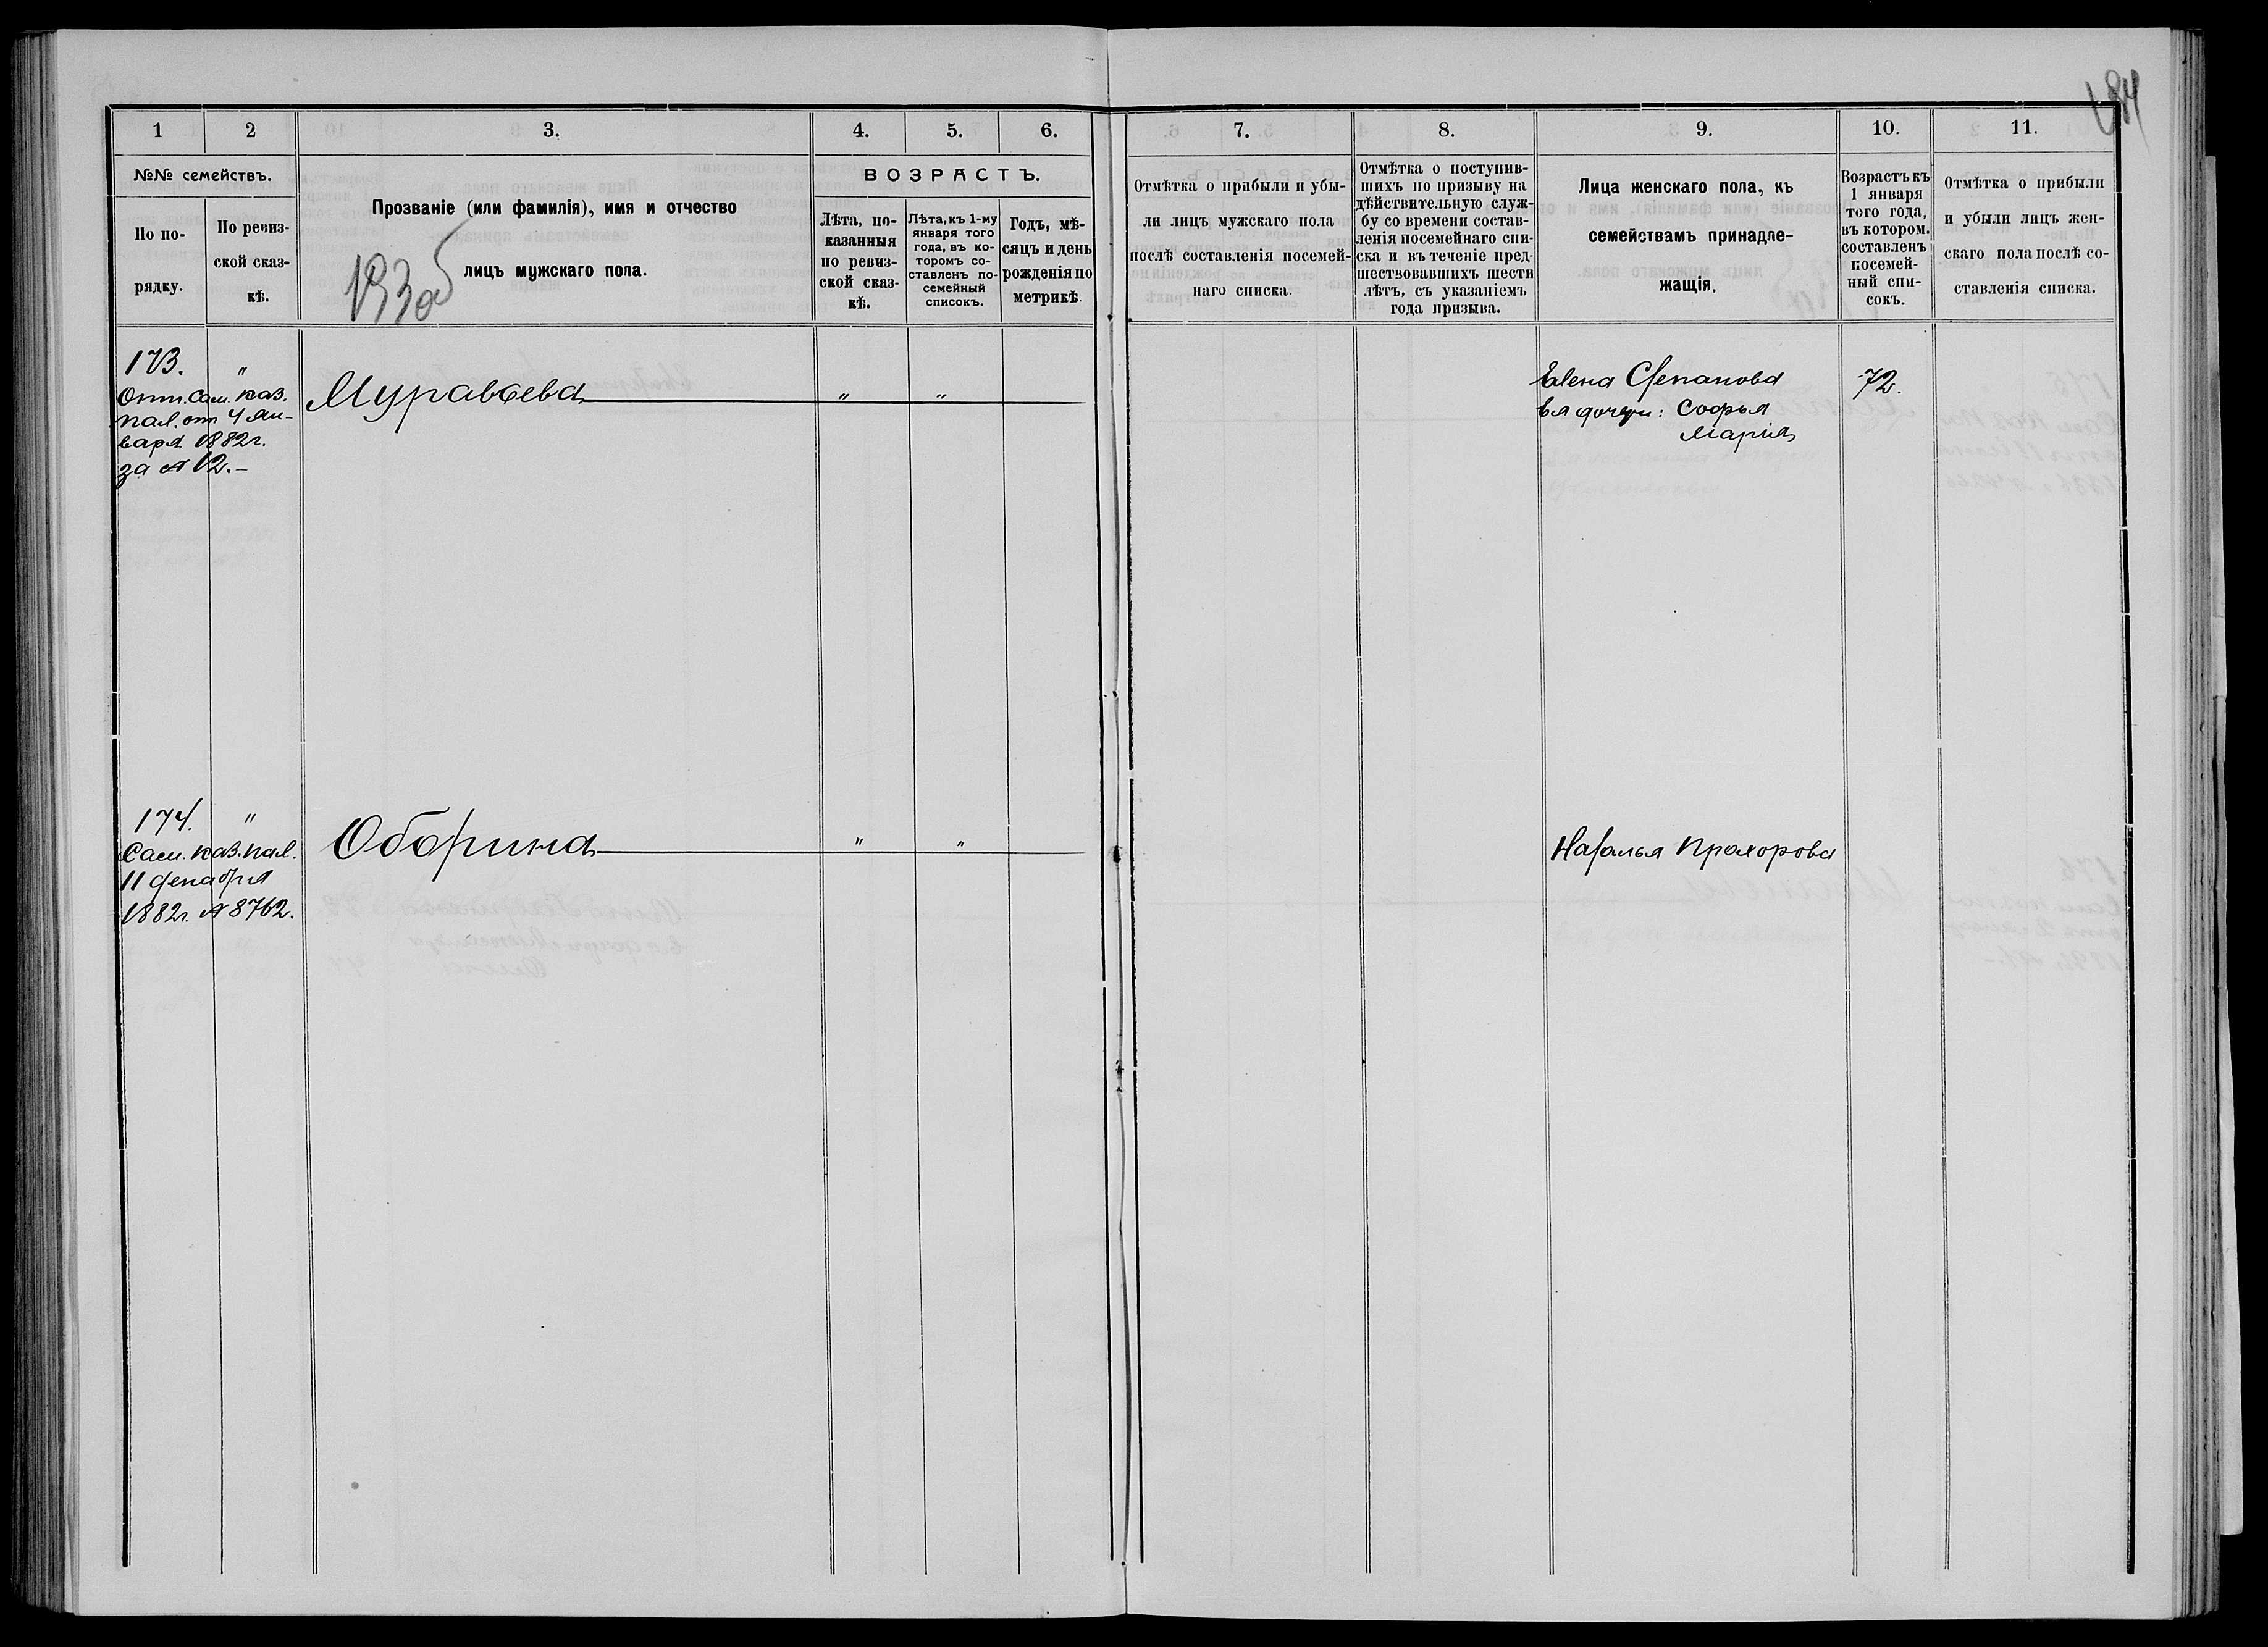 184
1 2 3. 4. 5. 6. 7. 8. 9. 10. 11.
№№ семействъ.
По по-
рядку.
По ревиз-
ской сказ-
кѣ.
Прозваніе (или фамилія), имя и отчество
лицъ мужскаго пола.
ВОЗРАСТЪ.
Лѣта, по-
казанныя
по ревиз-
ской сказ-
кѣ.
Лѣта, къ 1-му
января того
года, въ ко-
торомъ со-
ставленъ по-
семейный
списокъ.
Годъ, мѣ-
сяцъ и день
рожденія по
метрикѣ.
Отмѣтка о прибыли и убы-
ли лицъ мужскаго пола
послѣ составленія посемей-
наго списка.
Отмѣтка о поступив-
шихъ по призыву на
дѣйствительную служ-
бу со времени состав-
ленія посемейнаго спи-
ска и въ теченіе пред-
шествовавшихъ шести
лѣтъ, съ указаніемъ
года призыва.
Лица женскаго пола, къ
семействамъ принадле-
жащія.
Возрастъ къ
1 января
того года,
въ котором.
составленъ
посемей-
ный спи-
сокъ.
Отмѣтка о прибыли
и убыли лицъ жен-
скаго пола послѣ со-
ставленія списка.
173. "
Отн. Сам. Каз.
пал. от 4 Ян-
варя 1882 г.
за № 12.-
Муравьева " "
Елена Степанова 72.
Ея дочери: Софья
Марія
174. "
Сам. каз. пал.
11 декабря
1882 г. № 8762.
Оборина " "
Наталья Прохорова